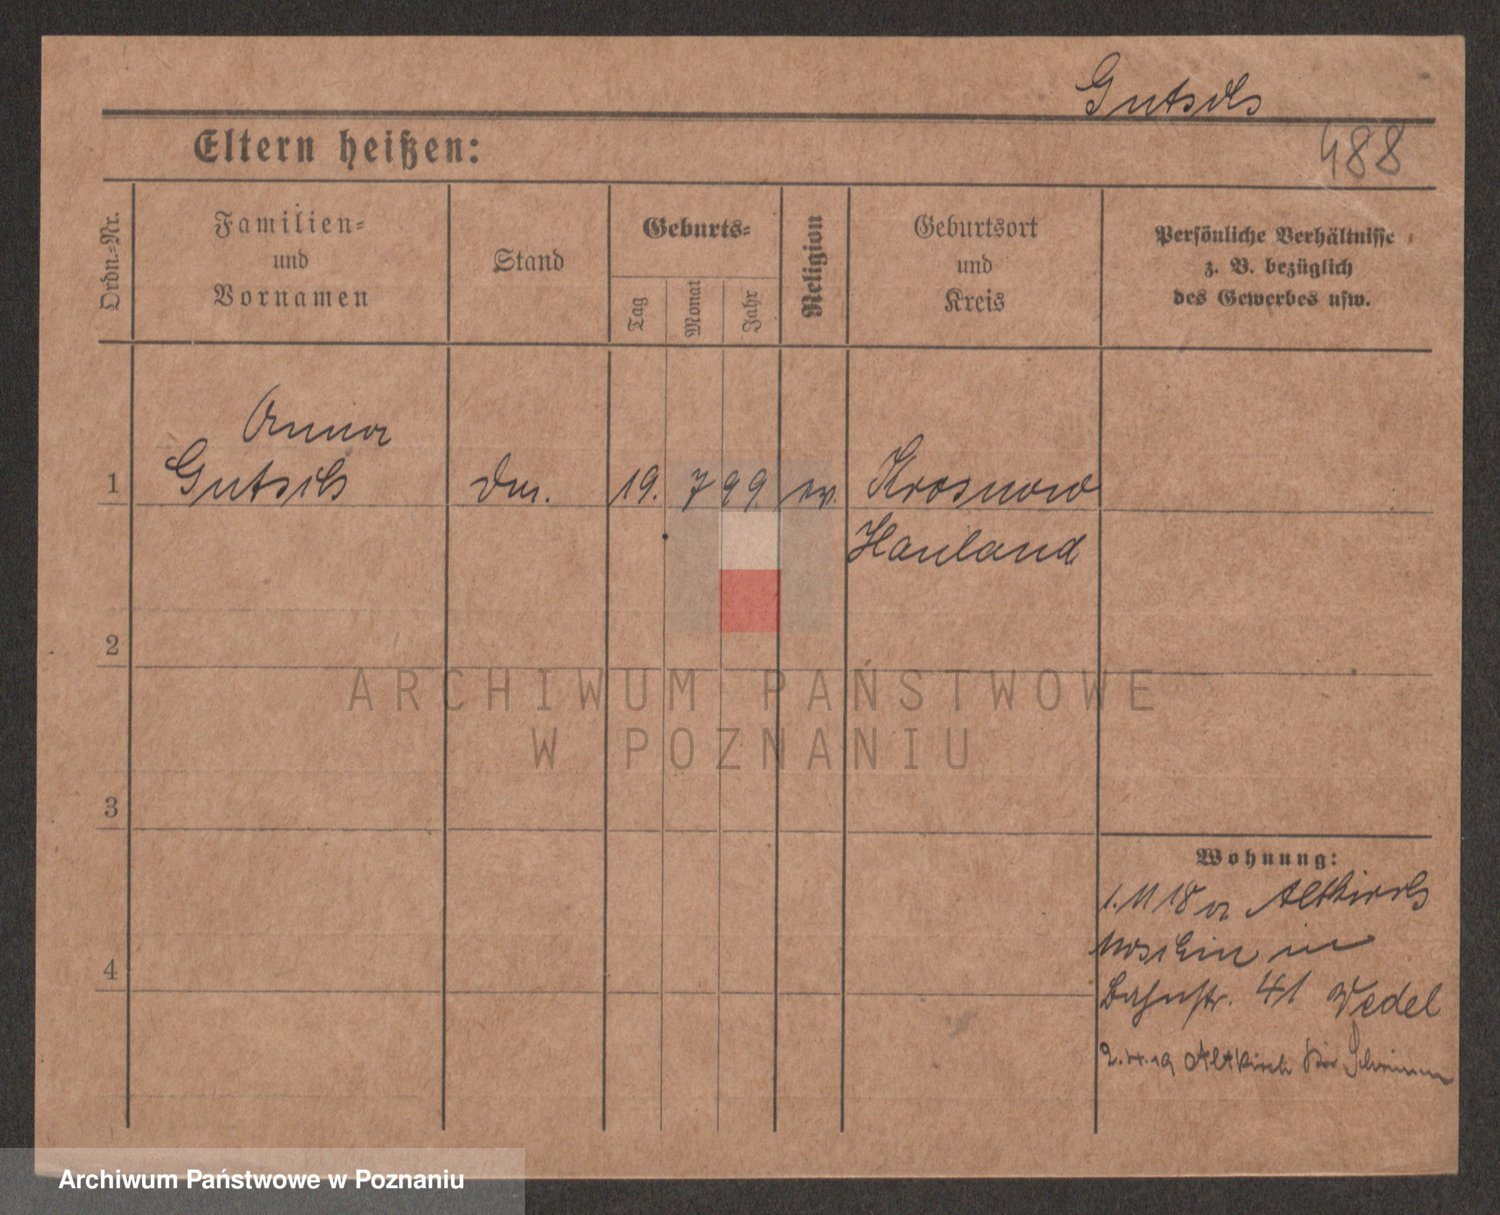 Gutsch
488
Eltern heißen:
Ordn.-Nr.
Familien-
und
Vornamen
Stand
Geburts-
Tag
Monat
Jahr
Religion
Geburtsort
und
Kreis
Persönliche Verhältnisse
z. B. bezüglich
des Gewerbes usw.
Anna
1 Gutsch 19. 7 99. ev. Krosnow
Hauland
2
3
4
ARCHIWUM PAŃSTWOWE
W POZNANIU
Wohnung:
1. 11 18 a Altkirch
Moschin
Bahnstr. 41 Wedel
2.4.19 Altkirch Schrimm
Archiwum Państwowe w Poznaniu